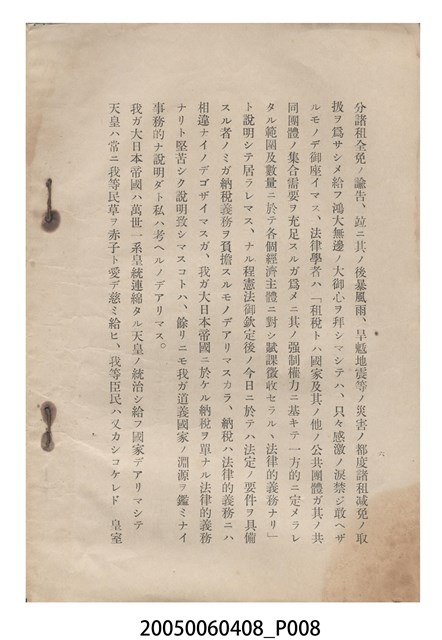 分諸租全免ノ諭吿、竝ニ其ノ後暴風雨、旱魃地震等ノ災害ノ都度諸租减免ノ取
扱ヲ爲サシメ給フ鴻大無邊ノ大御心ヲ拜シマシテハ、只々感激ノ淚禁ジ敢ヘザ
ルモノデ御座イマス、法律學者ハ「租稅トハ國家及其ノ他ノ公共團體ガ其ノ共
同團體ノ集合需要ヲ充足スルガ爲メニ其ノ强制權力ニ基キテ一方的ニ定メラレ
タル範圍及數量ニ於テ各個經濟主體ニ對シ賦課徵收セラルヽ法律的義務ナリ」
ト說明シテ居ラレマス、ナル程憲法御欽定後ノ今日ニ於テハ法定ノ要件ヲ具備
スル者ノミガ納稅義務ヲ負擔スルモノデアリマスカラ、納稅ハ法律的義務ニハ
相違ナイノデゴザイマスガ、我ガ大日本帝國ニ於ケル納稅ヲ單ナル法律的義務
ナリト堅苦シク說明致シマスコトハ、餘リニモ我ガ道義國家ノ淵源ヲ鑑ミナイ
事務的ナ說明ダト私ハ考ヘルノデアリマス。
我ガ大日本帝國ハ萬世一系皇統連綿タル天皇ノ統治シ給フ國家デアリマシテ
天皇ハ常ニ我等民草ヲ赤子ト愛デ慈ミ給ヒ、我等臣民ハ又カシコケレド　皇室
六
20050060408_P008